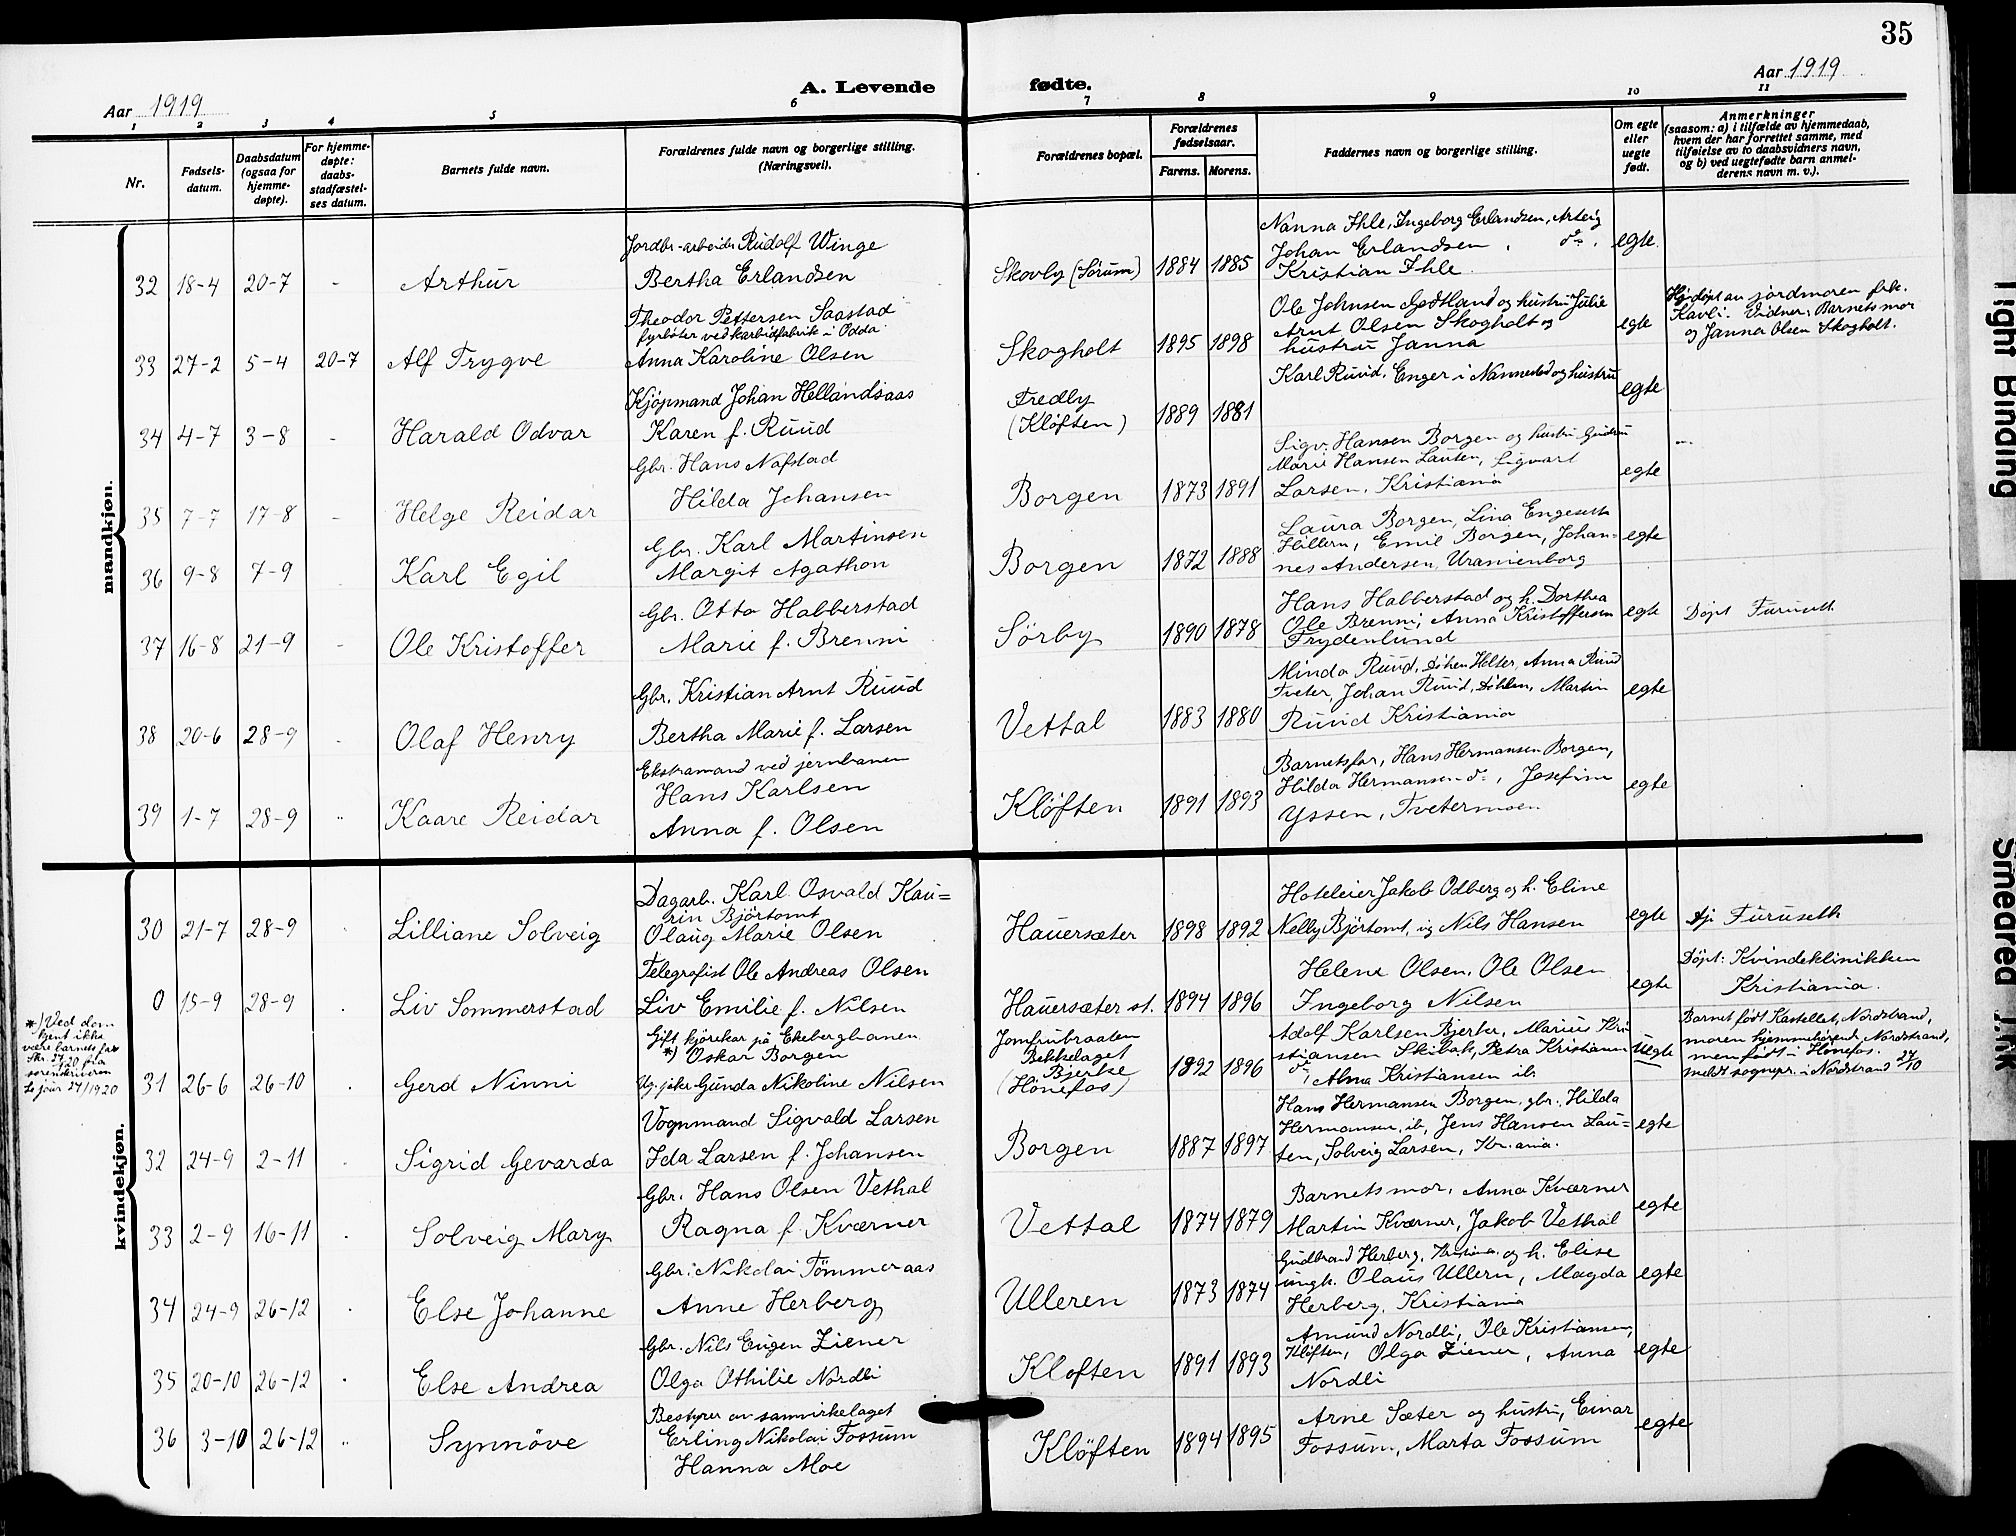 35
Aar 1919
A. Levende fødte.
Aar 1919
1 2 3 4 5 6 7 8 9 10 11
Nr.
Fødsels-
datum.
Daabsdatum
(ogsaa for
hjemme-
døpte).
For hjemme-
døpte:
daabs-
stadfæstel-
ses datum.
Barnets fulde navn.
Forældrenes fulde navn og borgerlige stilling.
(Næringsvei).
Forældrenes bopæl.
Forældrenes
fødselsaar.
Farens. Morens.
Faddernes navn og borgerlige stilling.
Om egte
eller
uegte
født.
Anmerkninger
(saasom: a) i tilfælde av hjemmedaab,
hvem der har forrettet samme, med
tilføielse av to daabsvidners navn,
og b) ved uegtefødte barn anmel-
derens navn m. v.).
mandkjøn.
32 18-4 20-7 - Arthur
Jordbr-arbeider Rudolf Winge
Bertha Erlandsen
Skovly (Sørum) 1884 1885
Nanna Ihle, Ingeborg Erlandsen, Arteig
Johan Erlandsen, do,
Kristian Ihle.
egte.
33 27-2 5-4 20-7 Alf Trygve
Theodor Pettersen Saastad
fyrbøter ved karbidfabrik i Odda
Anna Karoline Olsen
Skogholt 1895 1898
Ole Johnsen Godtland og hustru Julie
Arnt Olsen Skogholt og
hustru Janna
egte
Hj.døpt av jordmoren frk.
Kavli. Vidner: Barnets mor
og Janna Olsen Skogholt.
34 4-7 3-8 - Harald Odvar
Kjøpmand Johan Hellandsaas
Karen f. Ruud
Fredly
(Kløften) 1889 1881
Karl Ruud, Enger i Nannestad og hustru
egte
35 7-7 17-8 - Helge Reidar
Gbr. Hans Nafstad
Hilda Johansen
Borgen 1873 1891
Sigv. Hansen Borgen og hustru Gudrun
Marie Hansen Lauten, Sigvart
Larsen, Kristiania
egte
36 9-8 7-9 Karl Egil
Gbr. Karl Martinsen
Margit Agathon
Borgen 1872 1888
Laura Borgen, Lina Engeseth
Hillern, Emil Borgen, Johan-
nes Andersen, Uranienborg
egte
37 16-8 21-9 - Ole Kristoffer
Gbr. Otto Habberstad
Marie f. Brenni
Sörby 1890 1878
Hans Habberstad og h. Dorthea
Ole Brenni, Anna Kristoffersen
Frydenlund
egte
Døpt Furuseth
38 20-6 28-9 Olaf Henry
Gbr. Kristian Arnt Ruud
Bertha Marie f. Larsen
Vettal 1883 1880
Minda Ruud, Døhlen Holter, Anna Ruud
Tveter, Johan Ruud, Døhlen, Martin
Ruud Kristiania
egte
39 1-7 28-9 Kaare Reidar
Ekstramand ved jernbanen
Hans Karlsen
Anna f. Olsen
Kløften 1891 1893
Barnets far, Hans Hermansen Borgen,
Hilda Hermansen do, Josefine
Yssen, Tvetermoen
egte
kvindekjøn.
30 21-7 28-9 Lilliane Solveig
Dagarb. Karl Osvald Kau-
rin Bjørtomt
Olaug Marie Olsen
Hauersæter 1898 1892
Hoteleier Jakob Odberg og h. Eline
Nelly Bjørtomt, og Nils Hansen
egte
Furuseth
0 15-9 28-9 Liv Sommerstad
Telegrafist Ole Andreas Olsen
Liv Emilie f. Nilsen
Hauersæter st. 1894 1896
Helene Olsen, Ole Olsen
Ingeborg Nilsen
egte
Døpt: Kvindeklinikken
Kristiania.
*) Ved dom
kjent ikke
være barnets far
Skr. 27/1 20 fra
sorenskriveren
31 26-6 26-10 Gerd Ninni
Gift kjørekar på Ekebergbanen
*) Oskar Borgen
Ug. pike Gunda Nikoline Nilsen
Jomfrubraaten
Bekkelaget
Bjerke
(Hönefos) 1892 1896
Adolf Karlsen Bjerke, Marius Kri
stiansen Skibak, Petra Kristiansen
do, Alma Kristiansen ib.
Uegte
Barnet født Kastellet, Nordstrand,
moren hjemmehörende Nordstrand,
men født i Hønefos.
meldt sognepr. i Nordstrand 27/10
32 24-9 2-11 Sigrid Gevarda
Vognmand Sigvald Larsen
Ida Larsen f. Johansen
Borgen 1887 1897
Hans Hermansen Borgen, gbr., Hilda
Hermansen, ib, Jens Hansen Lau-
ten, Solveig Larsen, Kr.ania.
egte
33 2-9 16-11 Solveig Mary
Gbr. Hans Olsen Vethal
Ragna f. Kværner
Vettal 1874 1879
Barnets mor, Anna Kværner
Martin Kværner, Jakob Vethal
egte
34 24-9 26-12 Else Johanne
Gbr. Nikolai Tömmeraas
Anne Herberg
Ulleren 1873 1874
Gudbrand Herberg, Kristiania og h. Elise
ungk. Olaus Ullern, Magda
Herberg, Kristiania
egte
35 20-10 26-12 Else Andrea
Gbr. Nils Eugen Ziener
Olga Othilie Nordli
Kløften 1891 1893
Amund Nordli, Ole Kristiansen,
Kløften, Olga Ziener, Anna
Nordli
egte
36 3-10 26-12 Synnöve
Bestyrer av samvirkelaget
Erling Nikolai Fossum
Hanna Moe
Kløften 1894 1895
Arne Sæter og hustru, Einar
Fossum, Marta Fossum
egte
Tight Binding
Smeared Ink